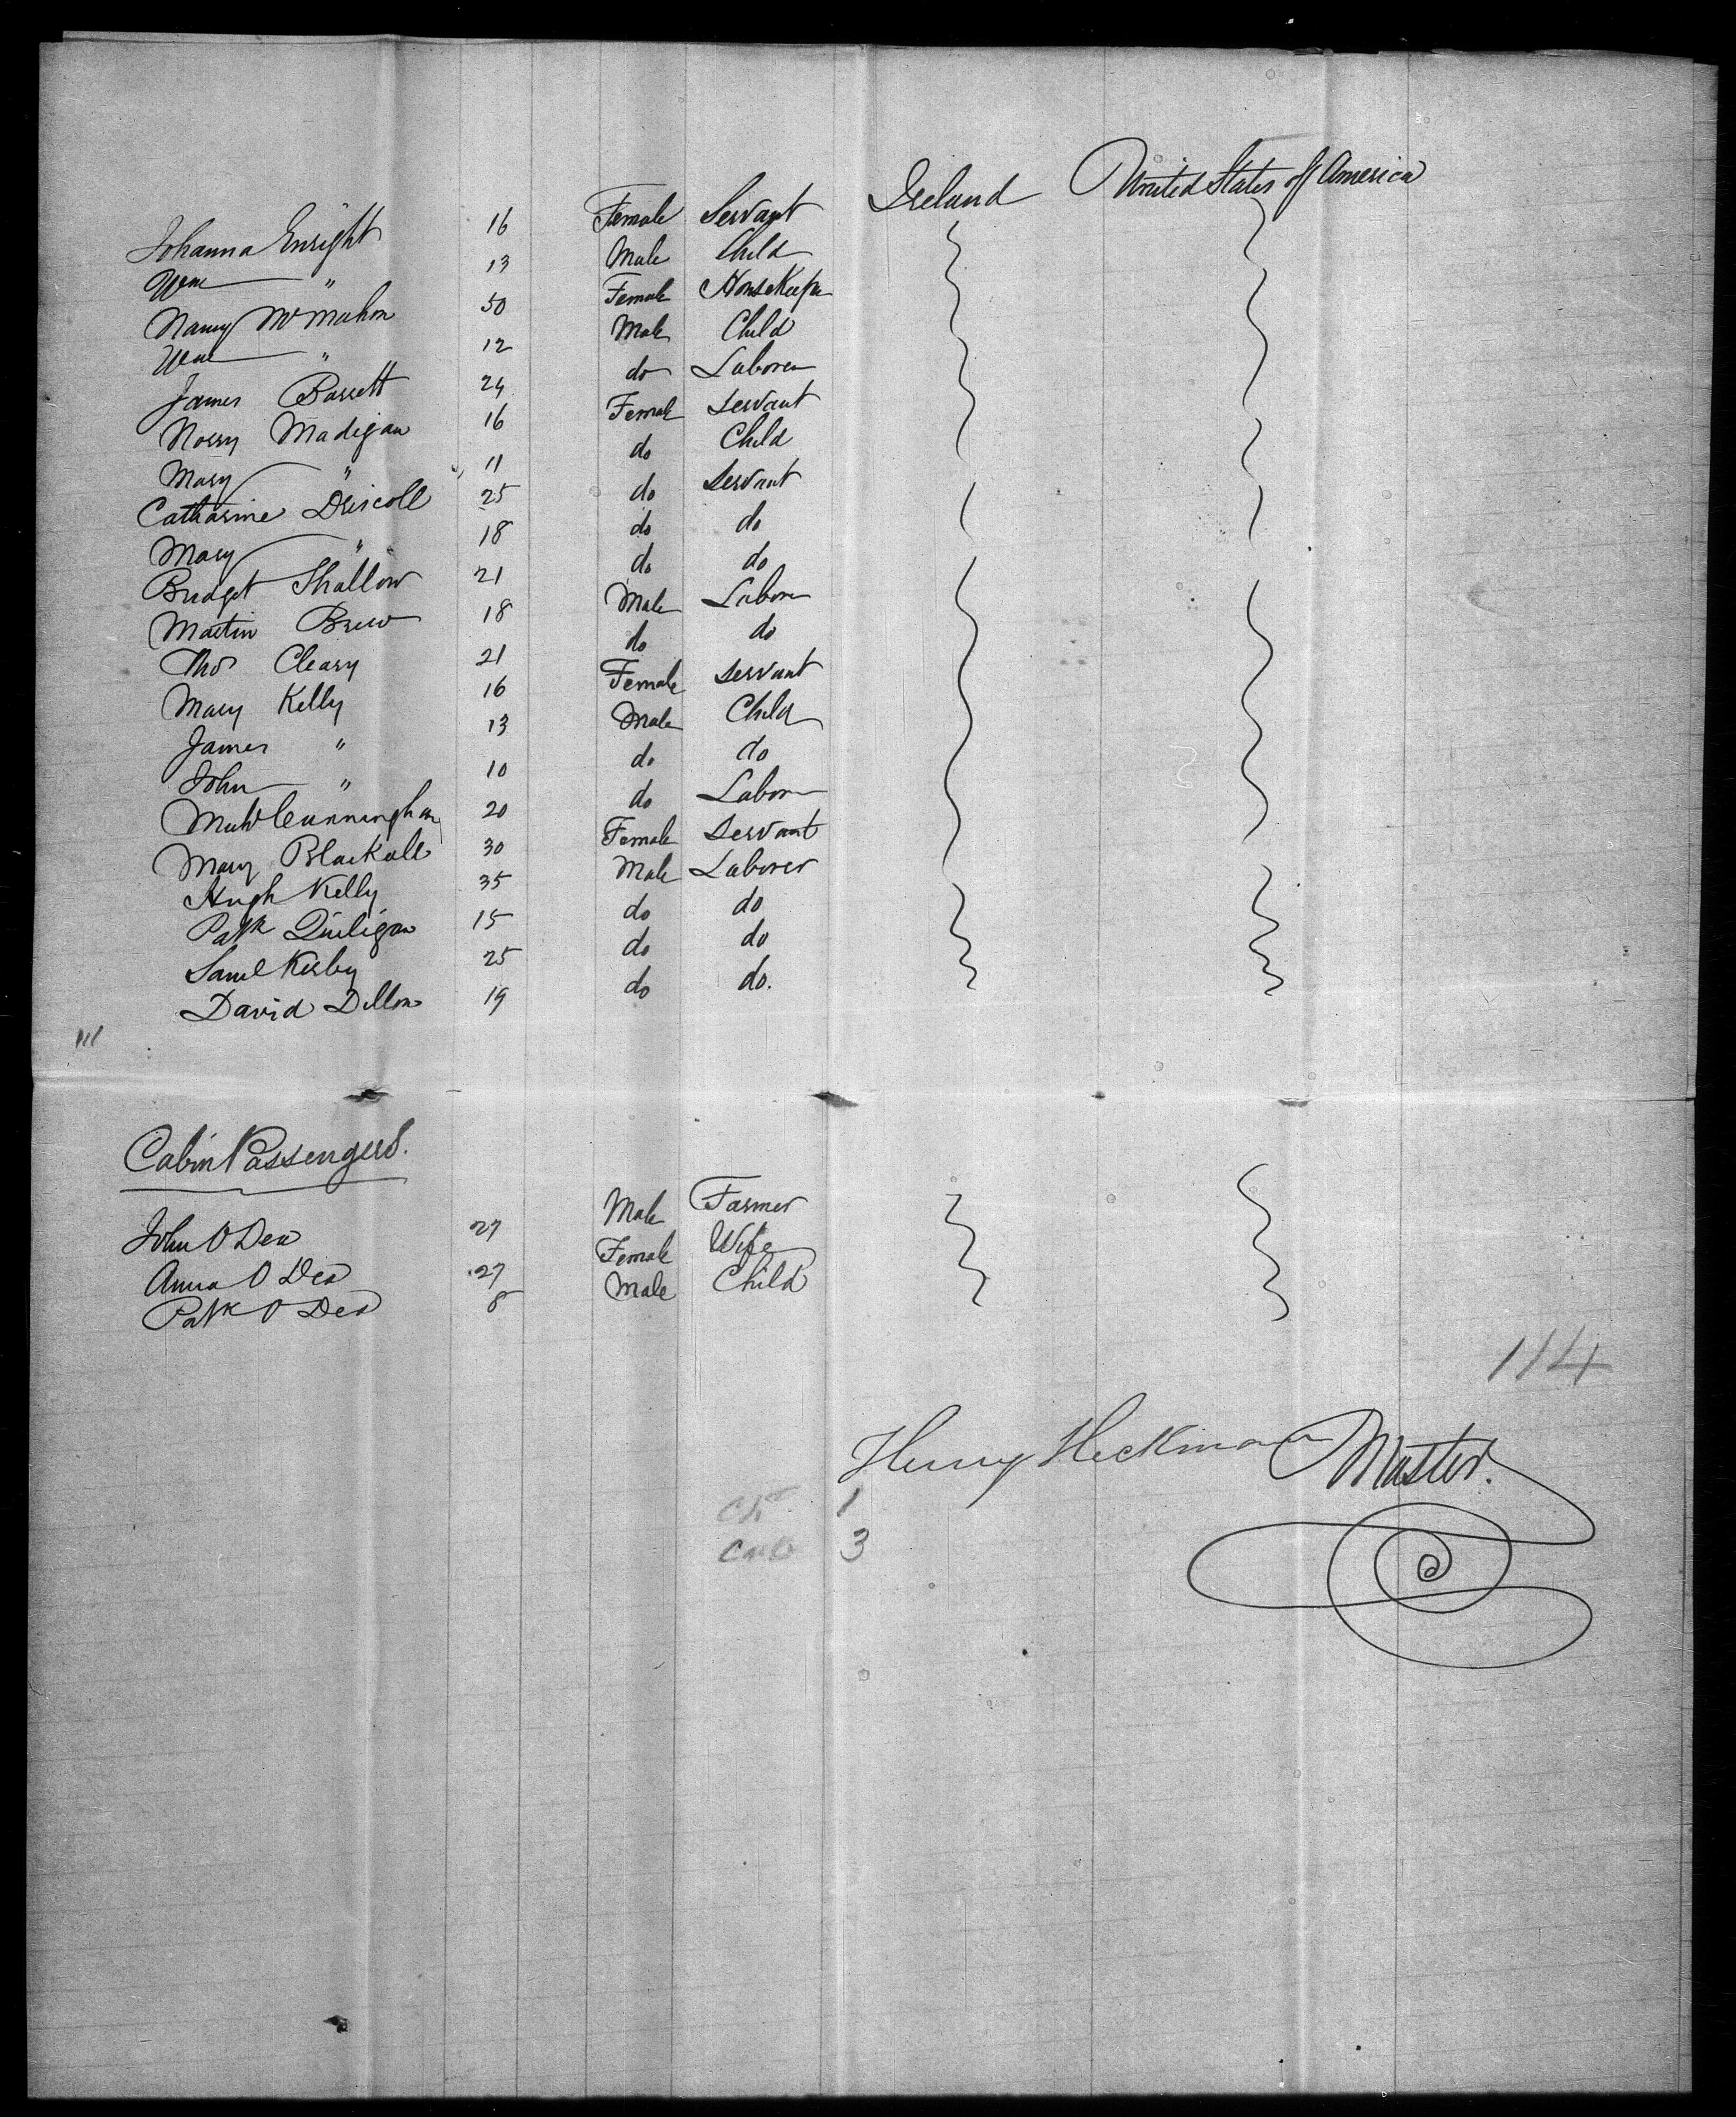 Johanna Enright 16 Female Servant Ireland United States of America
Wm " 13 Male Child
Nancy McMahon 50 Female HouseKeeper
Wm " 12 Male Child
James Barrett 24 do Laborer
Norry Madigan 16 Female Servant
Mary " 11 do Child
Catharine Driscoll 25 do Servant
Mary " 18 do do
Bridget Shallow 21 do do
Martin Brew 18 Male Labor
Thos Cleary 21 do do
Mary Kelly 16 Female Servant
James " 13 Male Child
John " 10 do do
Cunningham 20 do Labor
Mary Blackall 30 Female Servant
Hugh Kelly 35 Male Laborer
Patk Quiligan 15 do do
Saml Kerby 25 do do
David Dillon 19 do do.
111
Cabin Passengers.
John O Dea 27 Male Farmer
Anna O Dea 27 Female Wife
Patk O Dea 8 Male Child
114
Henry Heckman Master.
1
3